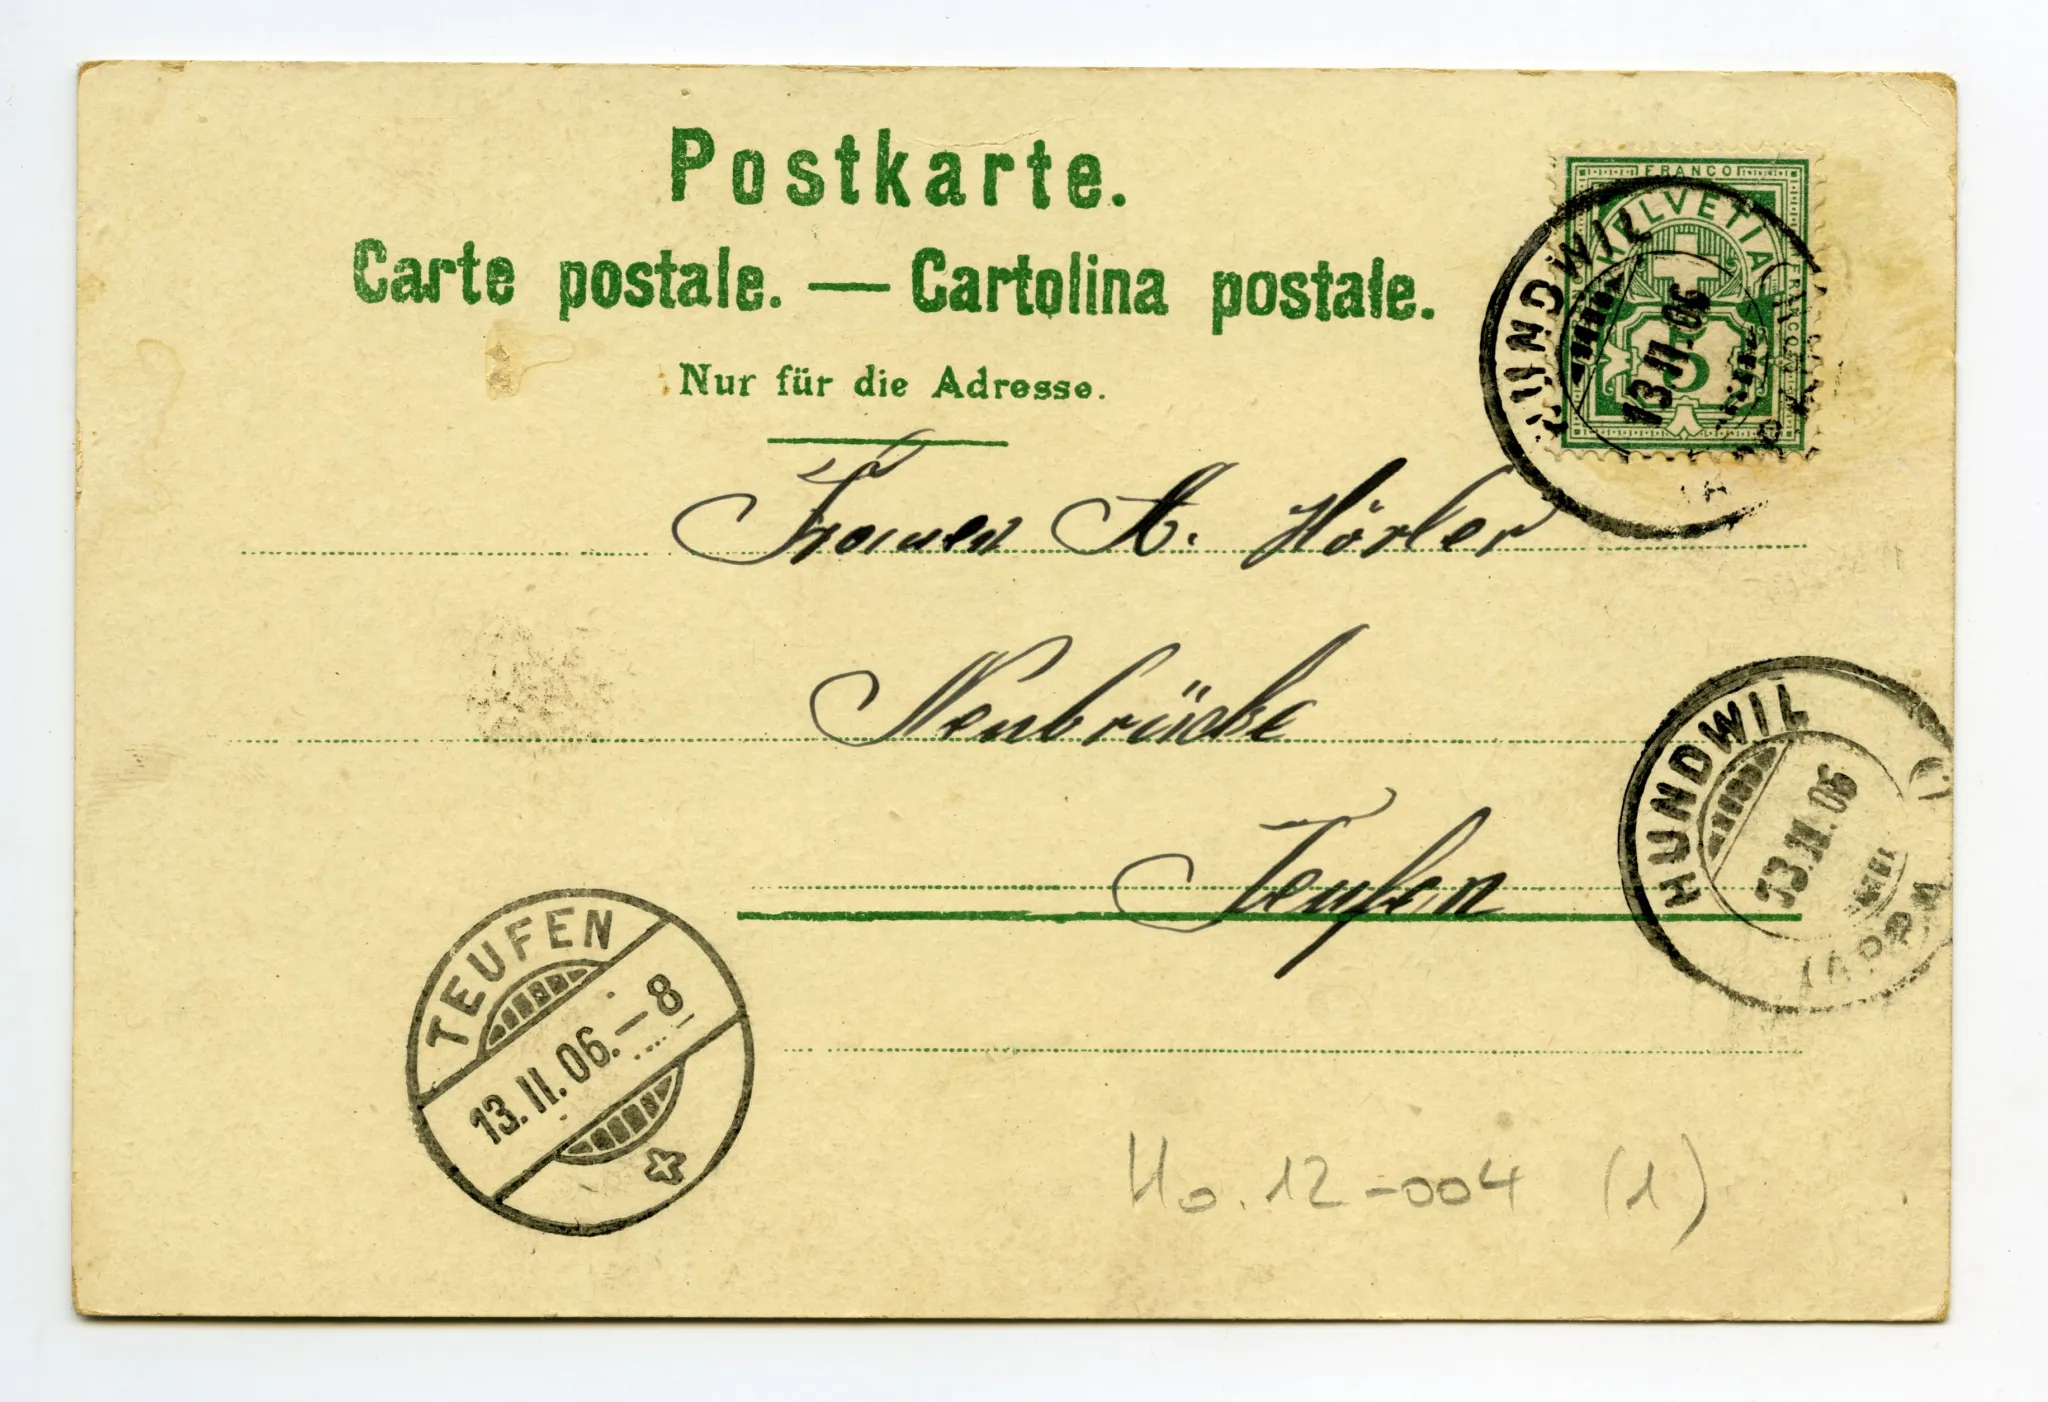 Postkarte.
Carte postale. — Cartolina postale.
Nur für die Adresse.
FRANCO
HELVETIA
FRANCO
5
HUNDWIL
13.II.06
A. Hörler
Neubrücke
Teufen
HUNDWIL
13.II.06
(APP
TEUFEN
13.II.06.–8
Ho. 12-004 (1)